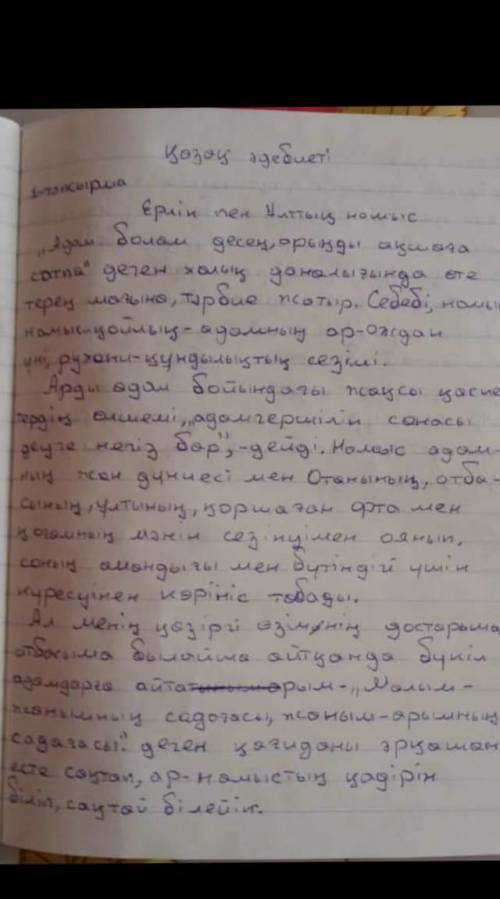 Қазақ әдебиеті
1-тапсырма
Ерлік пен Ұлттық намыс
"Адам болам десең, арыңды ақшаға
сатпа" деген халық даналығында өте
терең мағына, тәрбие жатыр. Себебі, намы
намысқойлық - адамның ар-ождан
үні, рухани-құндылықтың сезімі.
Арды адам бойындағы жақсы қасие
тердің өлшемі, "адамгершілік санасы
деуге негіз бар", - дейді. Намыс адам-
ның жан дүниесі мен Отанының, отба-
сының, ұлтының, қоршаған орта мен
қоғамның мәнін сезінуімен оянып,
соның амандығы мен бүтіндігі үшін
күресуінен көрініс табады.
Ал менің қазіргі өзімнің достарыма
отбасыма былайша айтқанда бүкіл
адамдарға айтарым - "Малым-
жанымның садағасы, жаным-арымның
садағасы." деген қағиданы әрқашан
есте сақтап, ар-намыстың қадірін
біліп, сақтай білейік.